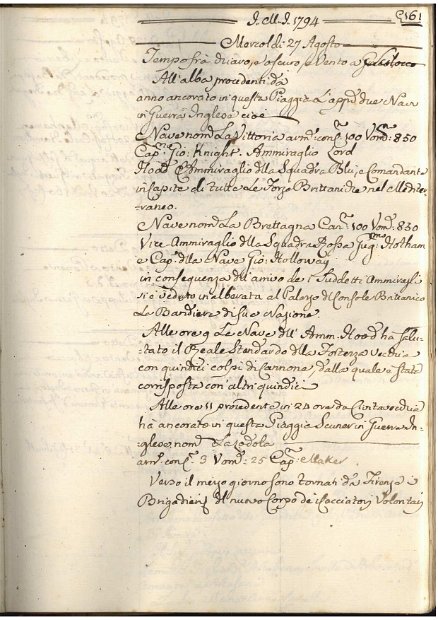 I.M.I. 1794
161
Mercoldì 27 Agosto
Tempo frà chiaro, e oscuro, e Vento a
All'alba procedenti dà
anno ancorato in questa Piaggia L'app.e due Nav
in Guerra Inglesi cioè
Nave nom.ta La Vittoria arm.ta con C. 100 Vom: 850
Cap. Gio: Knight. Ammiraglio Lord
Hood Ammiraglio della Squadra Blù, e Comandante
in Capite di tutte Le Forze Brittaniche nel Medite
raneo.
Nave nom.ta La Brettagna Can. 100 Vom: 830
Vice Ammiraglio della Squadra Rossa Gug.mo Hotham
e Cap. della Nave Gio: Holloway
in conseguenza dell'arrivo de i Sudetti Ammiragli
si è veduto inalberata al Palazzo del Console Brittanico
La Bandiera di Sua Nazione.
Alle ore 9 Le Nave dell'Amm. Hood ha Salu
tato il Reale Stendardo della Fortezza Vecchia
con quindici colpi di Cannone, dalla quale è stato
corrisposto con altri quindici
Alle ore 11 procedente in 24 ore da Civitavecchia
ha ancorato in questa Piaggia Scuner in Guerra In
glese, nom.
arm. con C. 3 Vom: 25 Cap. Maker
Verso il mezzo giorno sono tornati dà Firenze i
Brigadieri del nuovo Corpo de i Cacciatori Volontari